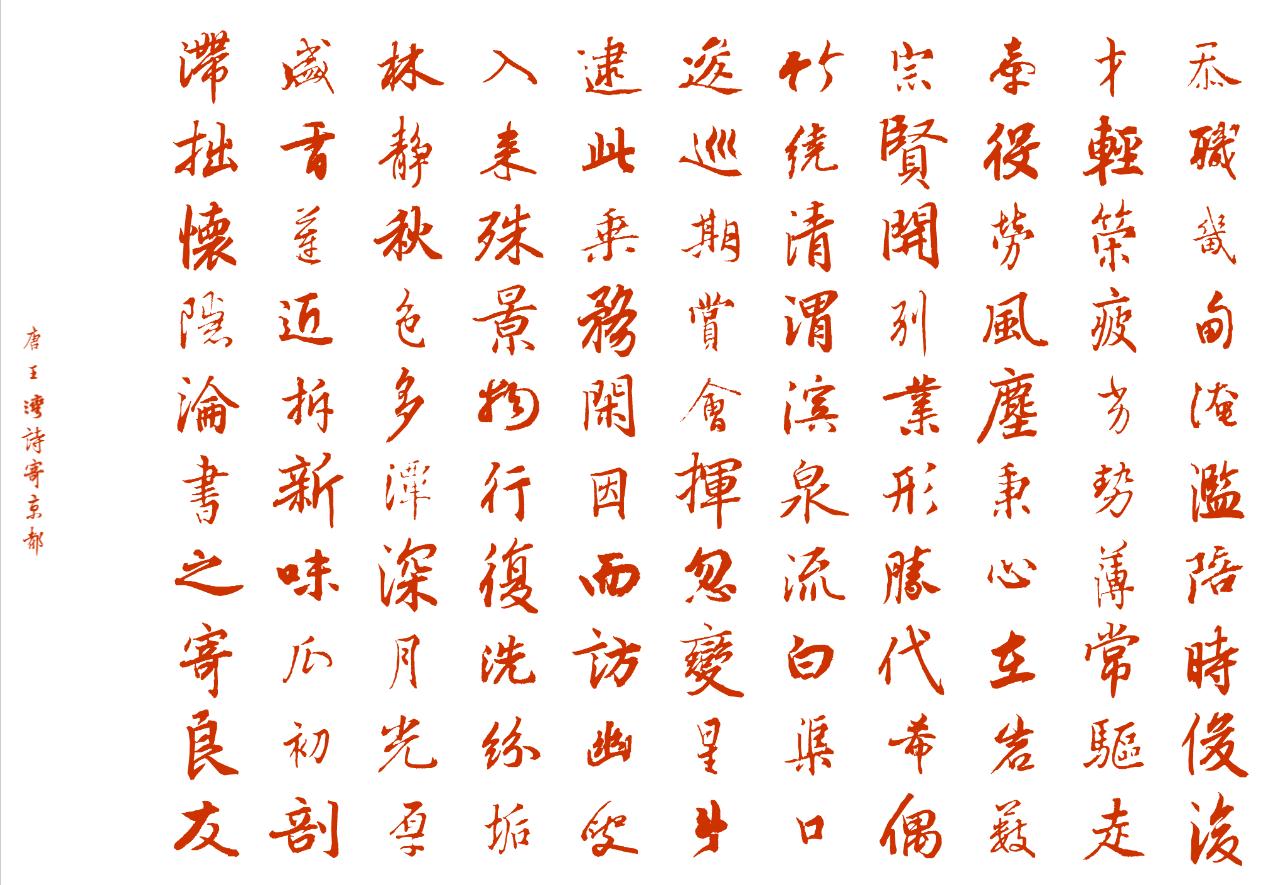 忝職畿甸淹濫陪時俊後
才輕策疲劣勢薄常驅走
牽役勞風塵秉心在岩藪
宗賢開別業形勝代希偶
竹繞清渭滨泉流白渠口
逡巡期賞會揮忽變星斗
逮此乗務閑因而訪幽叟
入来殊景物行復洗紛垢
林静秋色多潭深月光厚
盛香蓮近拆新味瓜初剖
滯拙懷隱淪書之寄良友
唐王灣詩寄京都